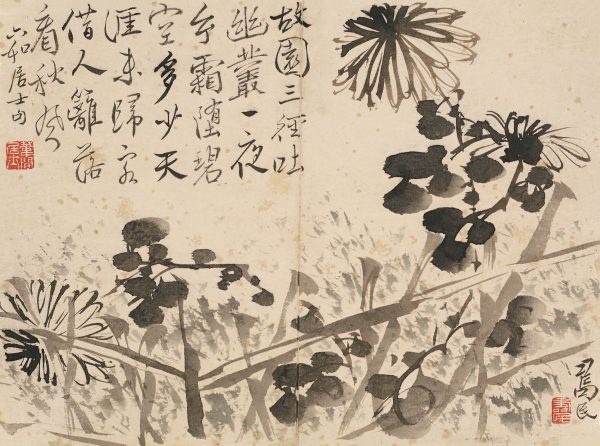 故園三徑吐
幽叢一夜
玄霜墮碧
空多少天
涯未歸客
借人籬落
看秋風
六如居士句
壽民